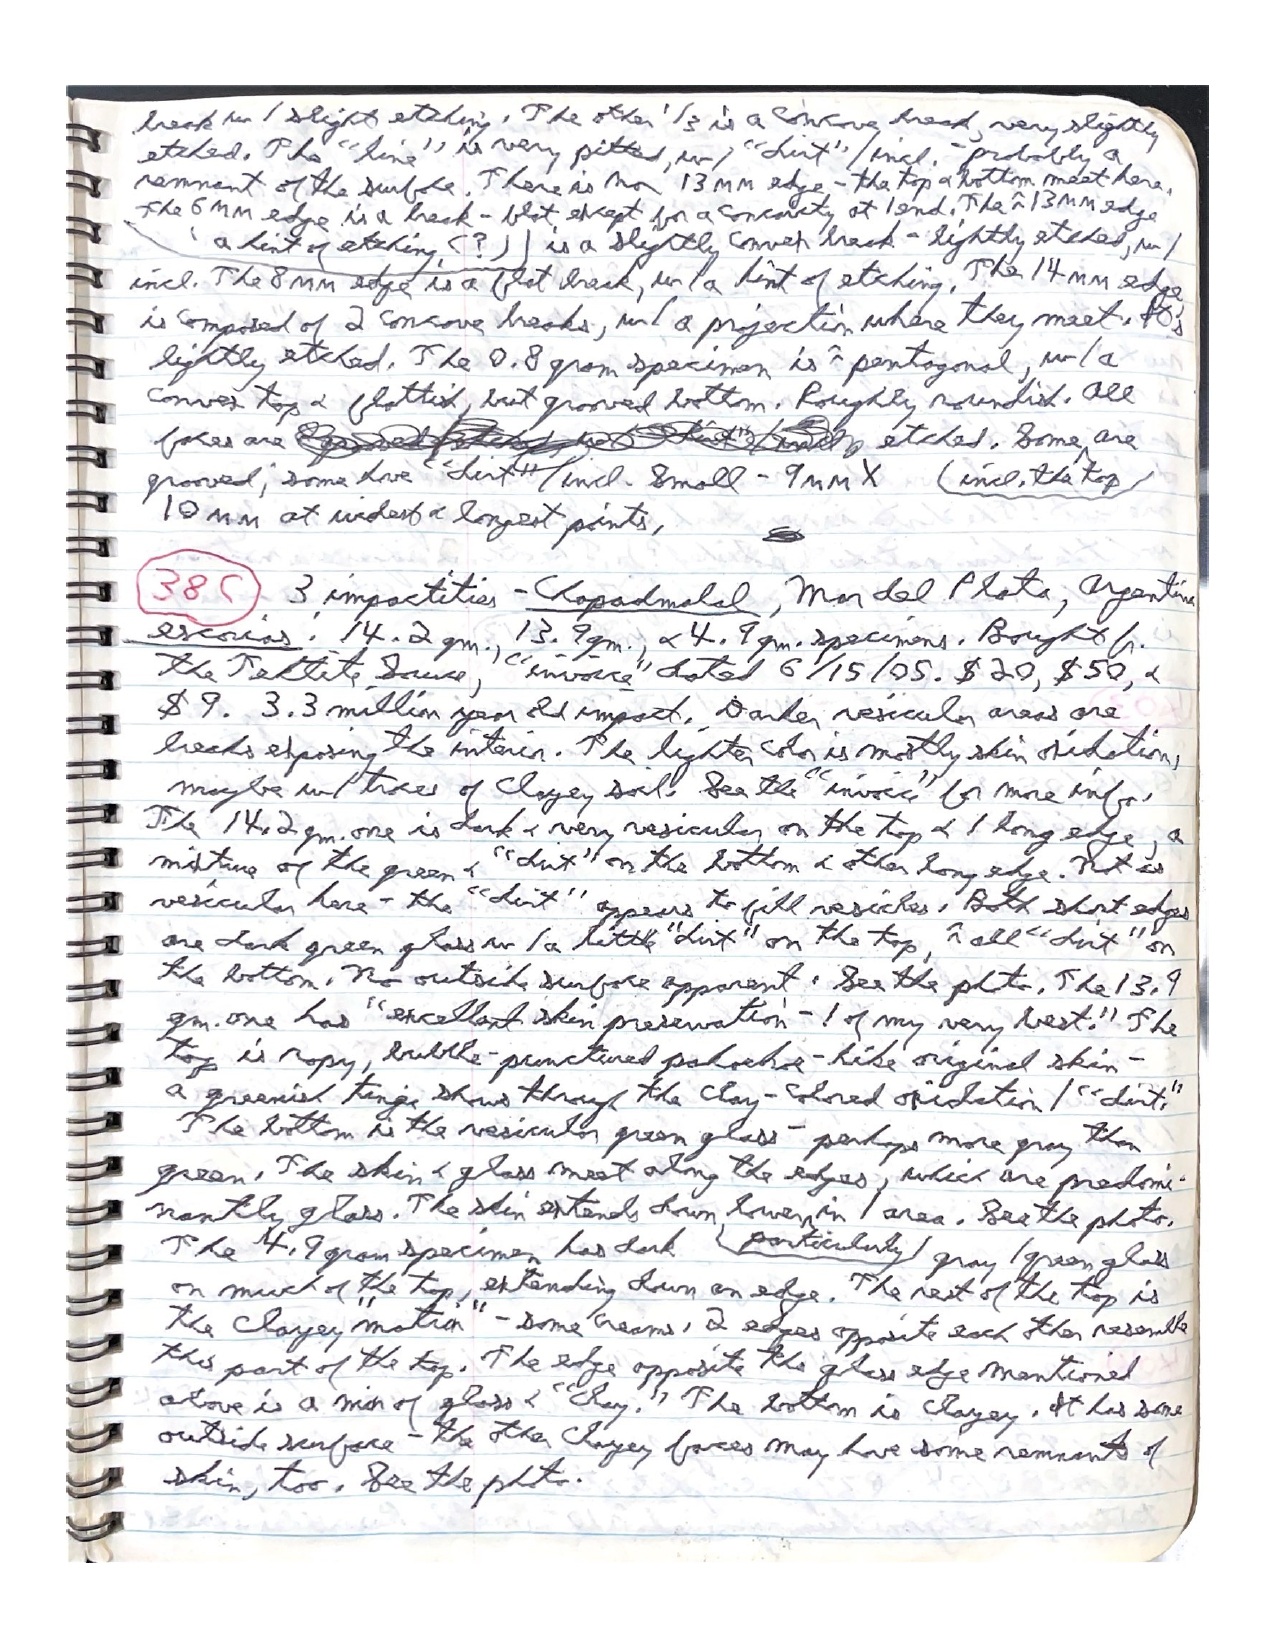 break w/ slight etching. The other 1/3 is a concave break, very slightly
etched. The "line" is very pitted, w/ "dirt"/incl. - probably a
remnant of the surface. There is no 13 MM edge - the top & bottom meet here.
The 6 MM edge is a break - flat except for a concavity at 1 end. The ~13 MM edge
(a hint of etching (?)) is a slightly convex break - lightly etched, w/
incl. The 8 MM edge is a flat break, w/ a hint of etching. The 14 MM edge
is composed of 2 concave breaks, w/ a projection where they meet. It's
lightly etched. The 0.8 gram specimen is ~ pentagonal, w/ a
convex top & flattish, but grooved bottom. Roughly roundish. All
faces are etched. Some are
grooved; some have "dirt"/incl. Small - 9 MM X (incl. the top)
10 MM at widest & longest points.
38C 3 impactites - Chapadmalal, Mar del Plata, Argentina
escorias. 14.2 gm., 13.9 gm., & 4.9 gm. specimens. Bought fr.
the Tektite Source, "invoice" dated 6/15/05. $20, $50, &
$9. 3.3 million year old impact. Darker vesicular areas are
breaks exposing the interior. The lighter color is mostly skin oxidation,
maybe w/ traces of clayey soil. See the "invoice" for more info.
The 14.2 gm. one is dark & very vesicular on the top & 1 long edge, a
mixture of the green & "dirt" on the bottom & other long edge. Not as
vesicular here - the "dirt" appears to fill vesicles. Both short edges
are dark green glass w/ a little "dirt" on the top, ~ all "dirt" on
the bottom. No outside surface apparent. See the photo. The 13.9
gm. one has "excellent skin preservation - 1 of my very best." The
top is ropy, bubble-punctured pahoehoe-like original skin -
a greenish tinge shows through the clay-colored oxidation/"dirt."
The bottom is the vesicular green glass - perhaps more gray than
green. The skin & glass meet along the edges, which are predomi-
nantly glass. The skin extends down lower in 1 area. See the photo.
The 4.9 gram specimen has dark (particularly) gray/green glass
on much of the top, extending down an edge. The rest of the top is
the clayey "matrix" - some creams. 2 edges opposite each other resemble
this part of the top. The edge opposite the glass edge mentioned
above is a mix of glass & "clay." The bottom is clayey. It has some
outside surface - the other clayey faces may have some remnants of
skin, too. See the photo.